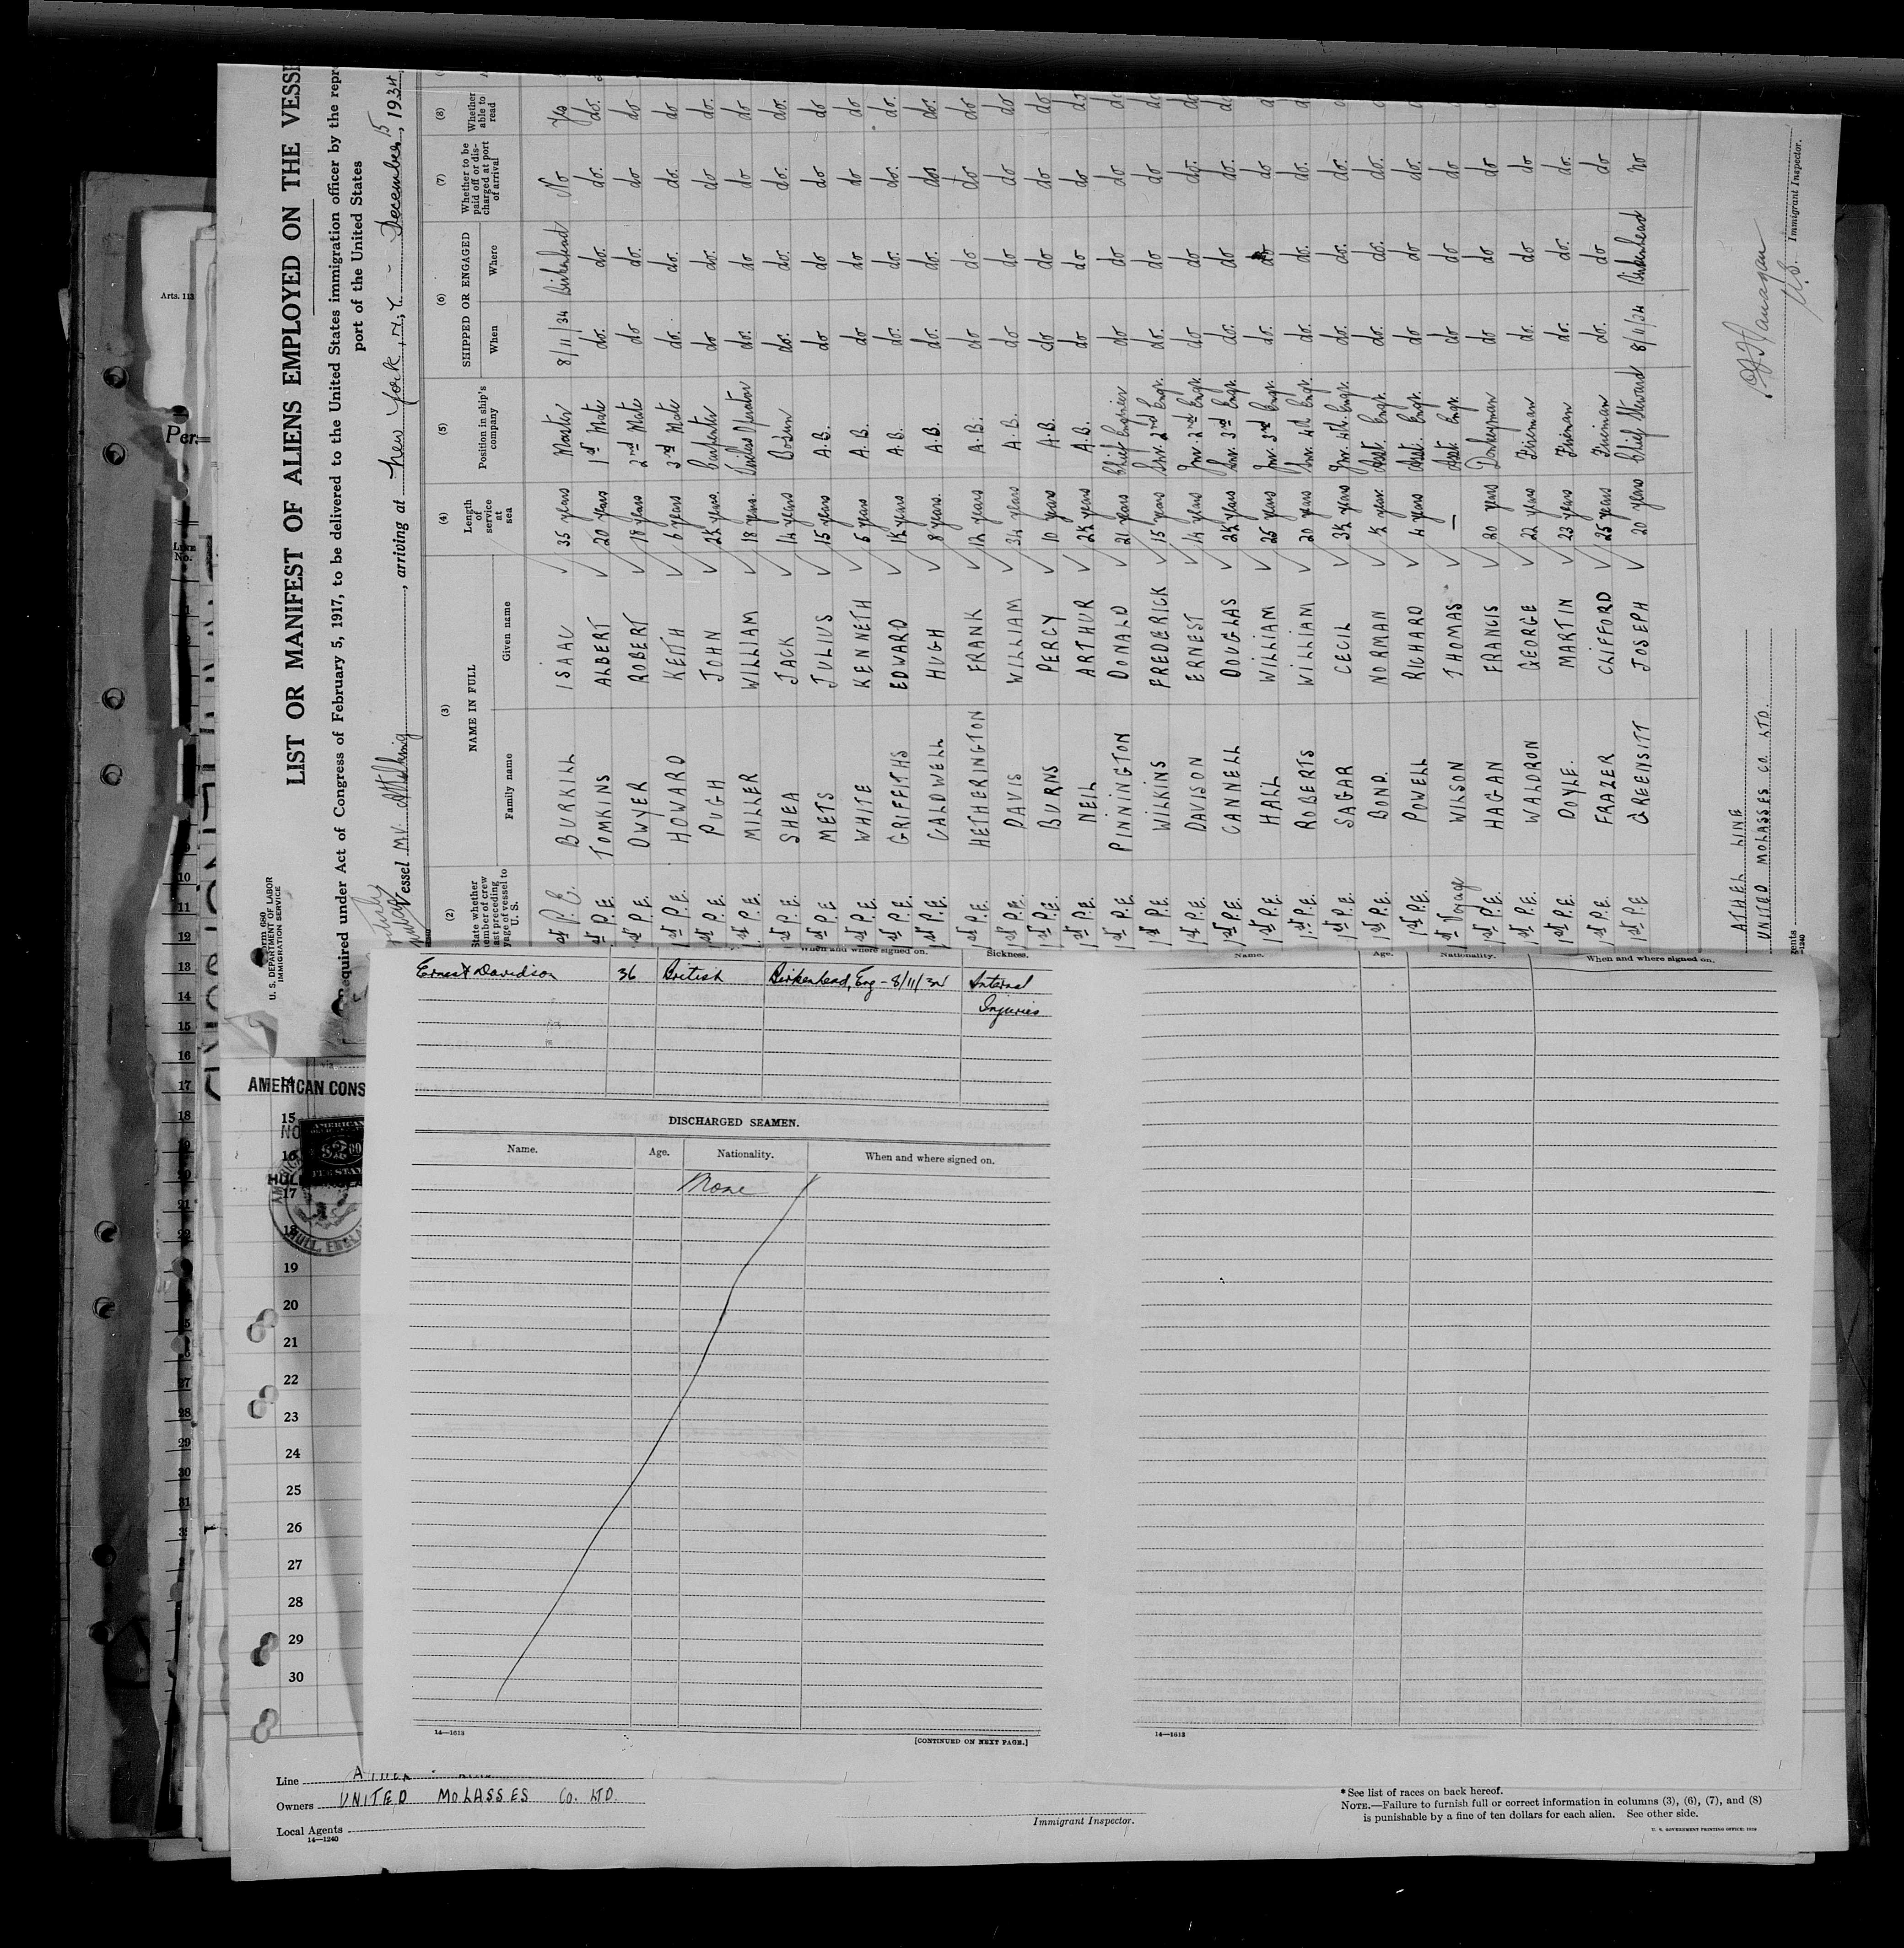 LIST OR MANIFEST OF ALIENS EMPLOYED ON THE VESSE
Required under Act of Congress of February 5, 1917, to be delivered to the United States immigration officer by the repr
port of the United States
Form 680
U. S. DEPARTMENT OF LABOR
IMMIGRATION SERVICE
Vessel M.V. , arriving at New York, N.Y. - December 15, 1934
(2) (3) (4) (5) (6) (7) (8)
State whether member of crew last preceding voyage of vessel to U. S.
NAME IN FULL
Family name Given name
Length of service at sea
Position in ship's company
SHIPPED OR ENGAGED
When Where
Whether to be paid off or discharged at port of arrival
Whether able to read
1st P.E. BURKILL ISAAC 35 years Master 8/11/34 Birkenhead No Yes
1st P.E. TOMKINS ALBERT 20 years 1st Mate do. do. do. do.
1st P.E. DWYER ROBERT 18 years 2nd Mate do do. do do
1st P.E. HOWARD KEITH 6 years 3rd Mate do. do. do. do
1st P.E. PUGH JOHN years. Carpenter do do. do do
1st P.E. MILLER WILLIAM 18 years. Wireless Operator do. do do do
1st P.E. SHEA JACK 14 years Bosun do. do. do. do.
1st P.E. METS JULIUS 15 years A.B. do do do do
1st P.E. WHITE KENNETH 5 years A.B. do do do do
1st P.E. GRIFFITHS EDWARD years A.B. do. do. do. do.
1st P.E. CALDWELL HUGH 8 years. A.B. do. do. do do.
1st P.E. HETHERINGTON FRANK years A.B. do do do do
1st P.E. DAVIS WILLIAM years A.B. do do do do
1st P.E. BURNS PERCY 10 years A.B. do do do do
1st P.E. NEIL ARTHUR years A.B. do do do do
1st P.E. PINNINGTON DONALD 21 years Chief Engineer do do do do
1st P.E. WILKINS FREDERICK 15 years Snr. 2nd Engr. do. do do do
1st P.E. DAVISON ERNEST 14 years Jnr. 2nd Engr. do do do. do
1st P.E. CANNELL DOUGLAS years Snr. 3rd Engr. do. do do. do
1st P.E. HALL WILLIAM 25 years Jnr. 3rd Engr. do. do do
1st P.E. ROBERTS WILLIAM 20 years Snr. 4th Engr. do. do. do.
1st P.E. SAGAR CECIL years Jnr. 4th Engr. do. do. do.
1st P.E. BOND. NORMAN year. Asst. Engr. do. do. do.
1st P.E. POWELL RICHARD 4 years Asst. Engr. do do do.
1st Voyage WILSON THOMAS — Asst. Engr. do do do
1st P.E. HAGAN FRANCIS 20 years Donkeyman do do do
1st P.E. WALDRON GEORGE 22 years Fireman do. do do
1st P.E. DOYLE. MARTIN 23 years Fireman do. do. do.
1st P.E. FRAZER CLIFFORD 25 years Fireman do. do do
1st P.E. GREENSITT JOSEPH 20 years Chief Steward 8/11/34 Birkenhead no
ATHEL LINE
UNITED MOLASSES CO. LTD.
Immigrant Inspector.
When and where signed on. Sickness.
Ernest Davidson 36 British Birkenhead, Eng - 8/11/34 Internal
Injuries
DISCHARGED SEAMEN.
Name. Age. Nationality. When and where signed on.
None
14—1613
[CONTINUED ON NEXT PAGE.]
Name. Age. Nationality. When and where signed on.
14—1613
AMERICAN CONS
HULL, ENGLA
Arts. 113
Per
Line No.
10
11
12
13
14
15
16
17
18
15
16
17
18
19
20
21
22
23
24
25
26
27
28
29
30
Line
Owners UNITED MOLASSES Co. LTD.
Local Agents
14—1240
Immigrant Inspector.
* See list of races on back hereof.
NOTE.—Failure to furnish full or correct information in columns (3), (6), (7), and (8)
is punishable by a fine of ten dollars for each alien. See other side.